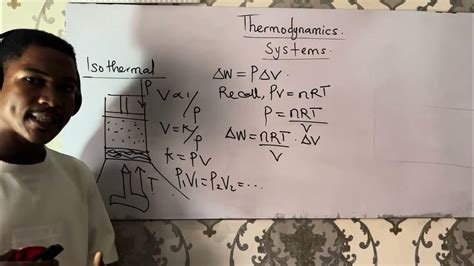 Thermodynamics.
Systems.
Isothermal
P
V∝1/P
V=K/P
K=PV
T
P₁V₁=P₂V₂=...
ΔW=PΔV.
Recall, PV=nRT
P=nRT/V
ΔW=nRT/V·ΔV